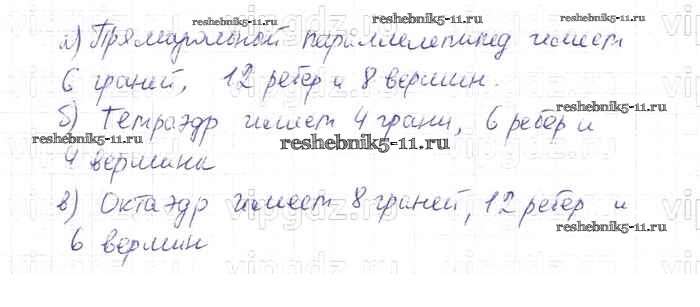 reshebnik5-11.ru
а) Прямоугольный параллелепипед имеет
reshebnik5-11.ru
6 граней, 12 ребер и 8 вершин.
reshebnik5-11.ru
б) Тетраэдр имеет 4 грани, 6 ребер и
reshebnik5-11.ru
reshebnik5-11.ru
4 вершины
в) Октаэдр имеет 8 граней, 12 ребер и
reshebnik5-11.ru
reshebnik5-11.ru
6 вершин